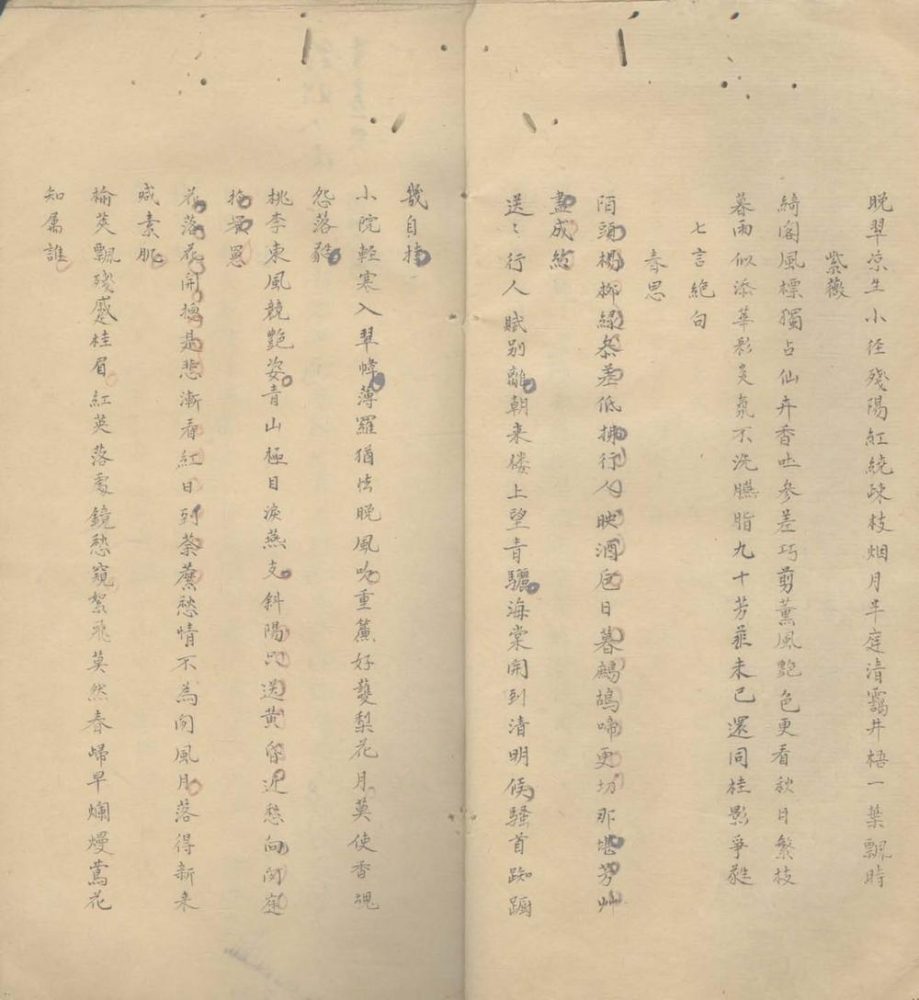 晚翠凉生小径殘陽紅繞疎枝烟月半庭清露井梧一葉飄時
紫薇
綺閣風標獨占仙卉香吐參差巧剪薰風艶色更看秋日繁枝
暮雨似添華彩炎氛不洗臙脂九十芳菲未已還同桂影爭
七言絕句
春思
陌頭楊柳綠參差低拂行人映酒巵日暮鷓鴣啼更切那堪芳艸
盡成
送〻行人賦別離朝来楼上望青驪海棠開到清明候騷首踟躕
幾自持
小院輕寒入翠幃薄羅猶怯晚風吹重簾好護梨花月莫使香魂
怨落
桃李東風競艶姿青山極目淚燕支斜陽只送黃昏近愁向

花落花開揔是悲漸看紅日到荼蘼愁情不為向風月落得新来
減素肌
榆莢飄殘蹙桂眉紅英落處鏡愁窺絮飛莫然春歸早爛熳鶯花
知属誰